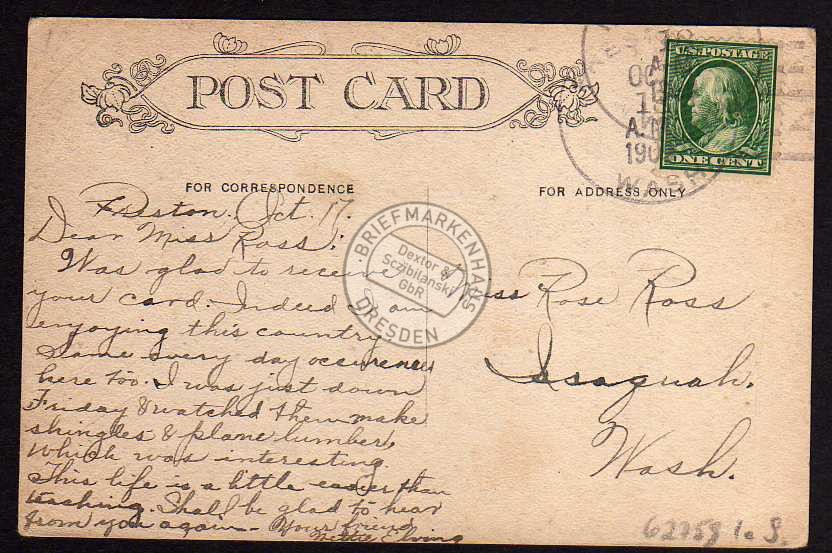 POST CARD
U.S. POSTAGE
ONE CENT
OC
A.M
190
WASH
FOR CORRESPONDENCE
FOR ADDRESS ONLY
Preston. Oct. 17.
Dear Miss Ross:
Was glad to receive
your card. Indeed I am
enjoying this country
Same every day occurences
here too. I was just down
Friday & watched them make
shingles & plane lumber,
which was interesting.
This life is a little easier than
teaching. Shall be glad to hear
from you again - Your friend
Nettie
Miss Rose Ross
Issaquah.
Wash.
BRIEFMARKENHAUS
Dextor &
Sczibilanski
GbR
DRESDEN
62758 1. S.